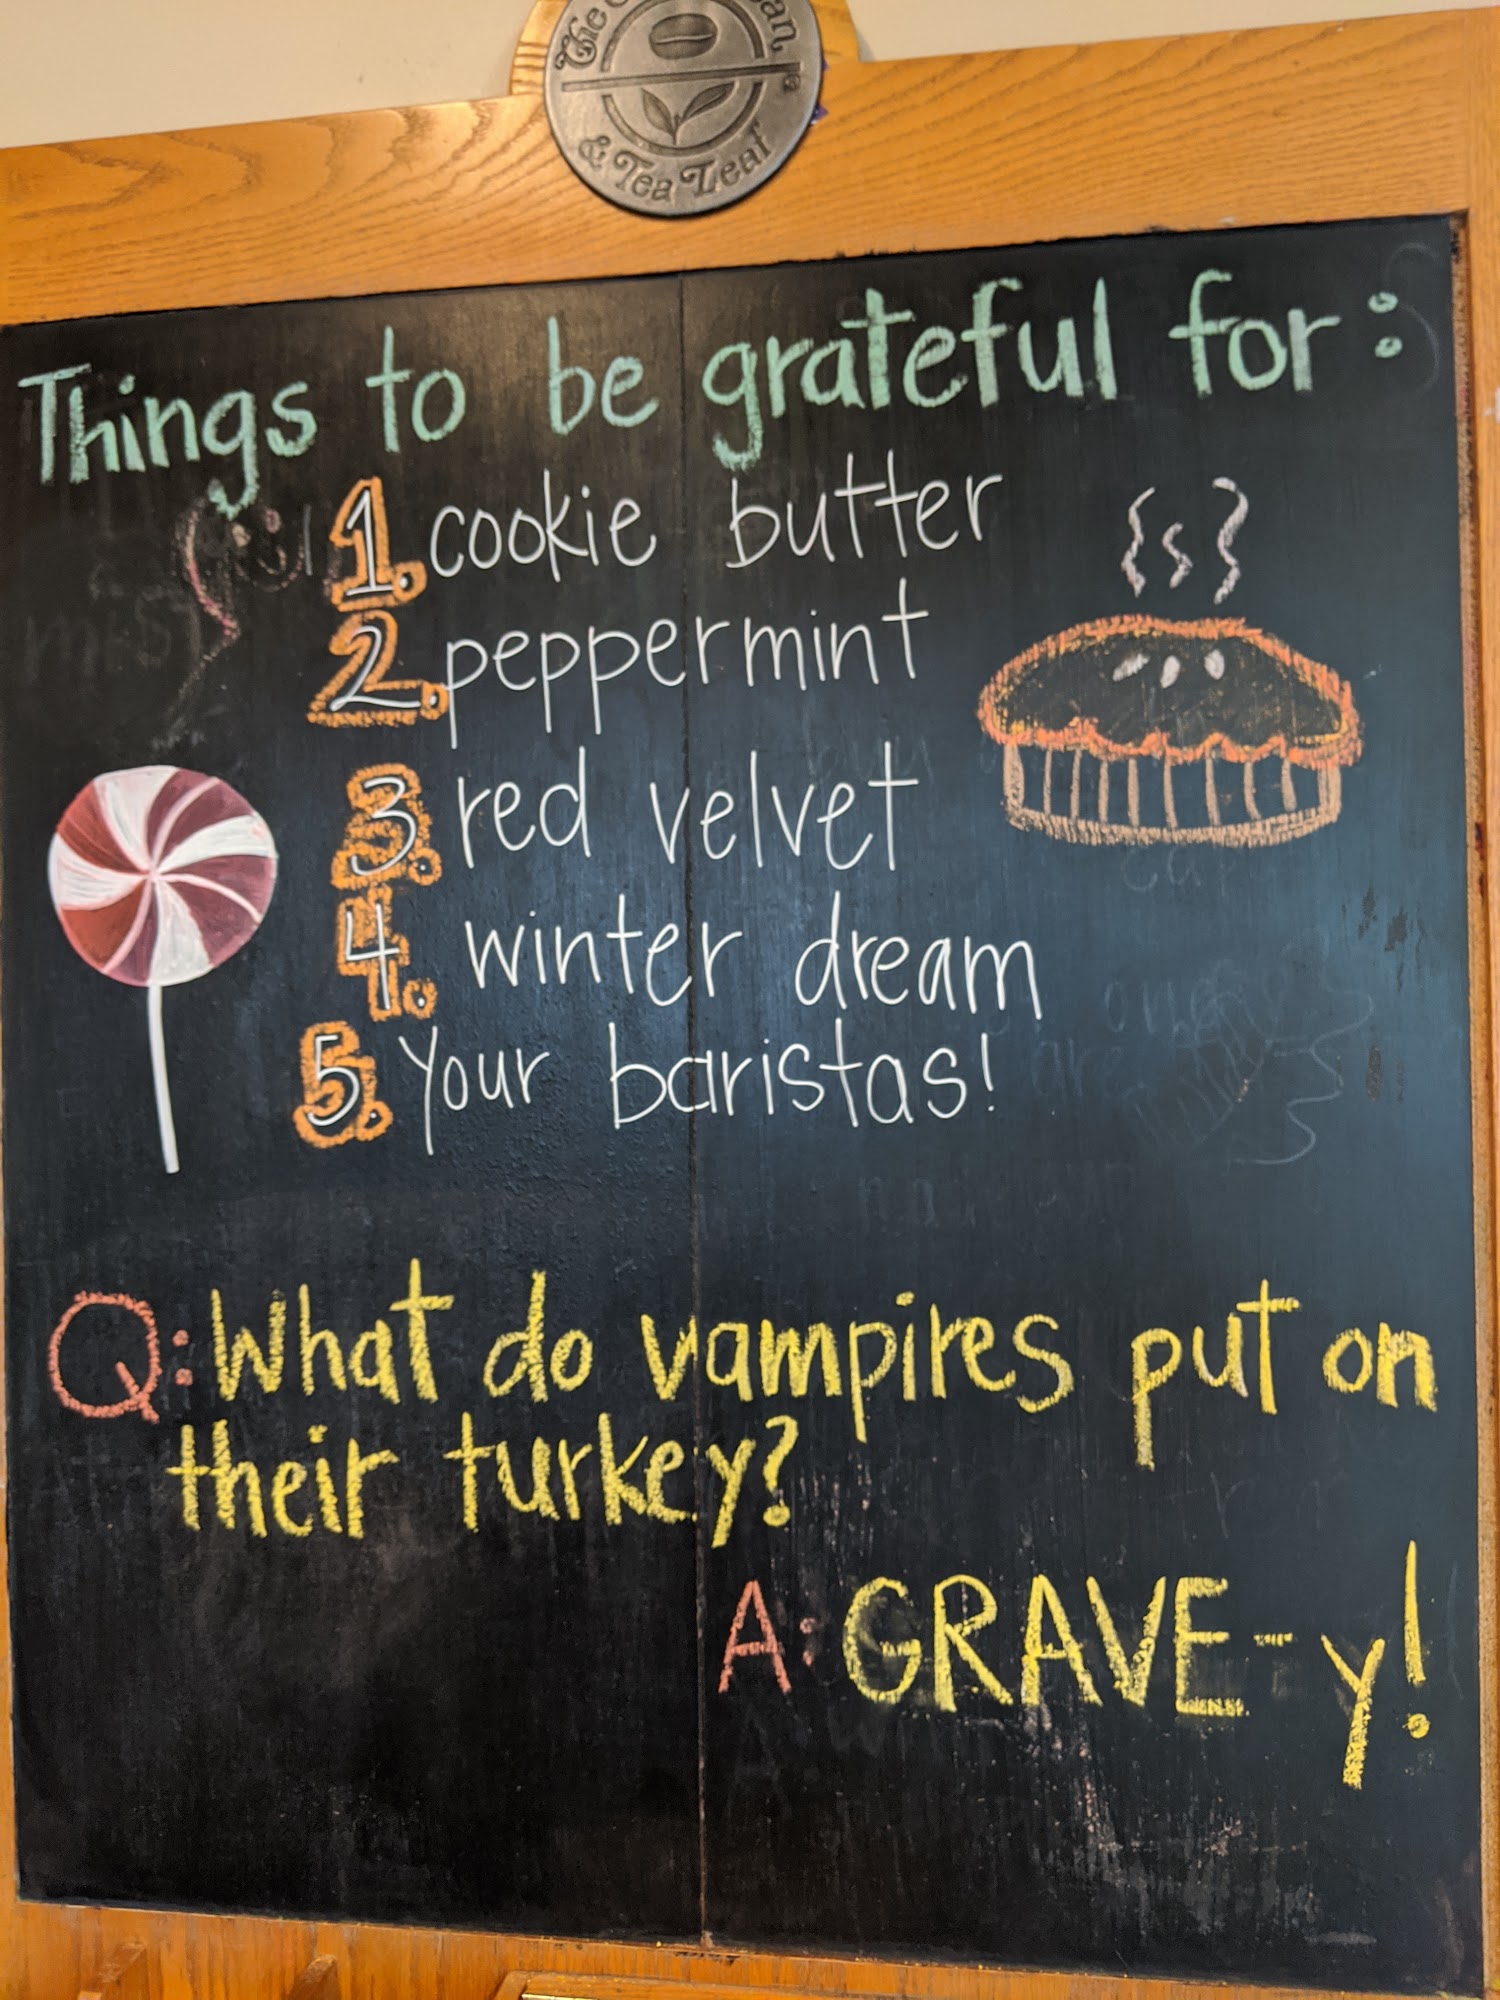 The
& Tea Leaf
Things to be grateful for:
1. cookie butter
2. peppermint
3. red velvet
4. winter dream
5. Your baristas!
Q: What do vampires put on
their turkey?
A: GRAVE-y!